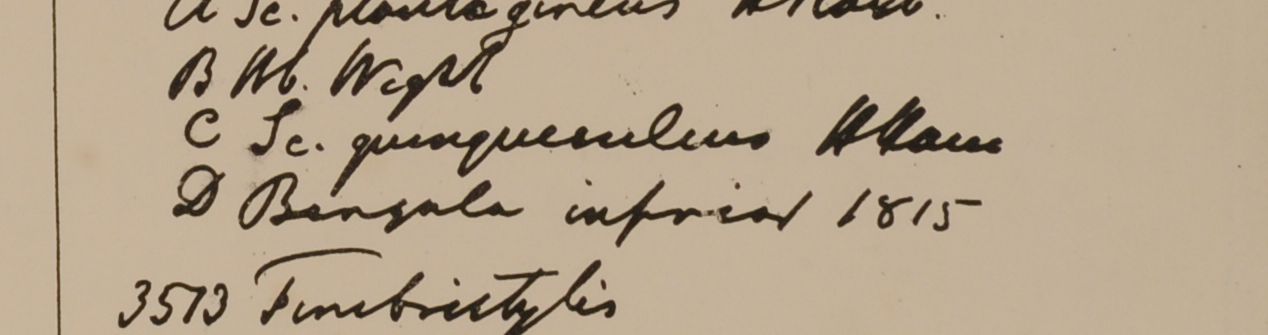 A Sc. plantagineus HHam.
B Hb. Wight
C Sc. quinquesulcus HHam
D Bengala inferior 1815
3513 Fimbristylis